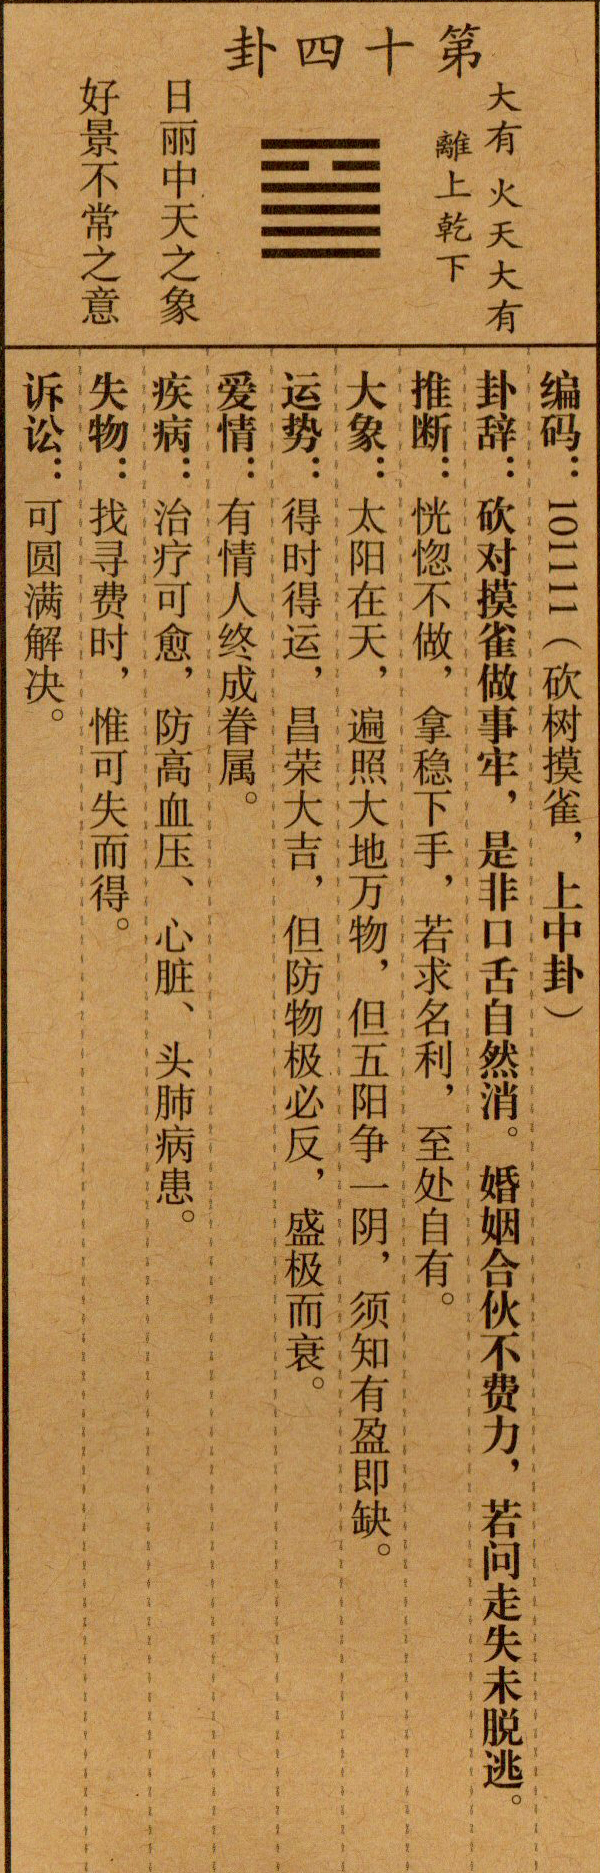 第十四卦
大有 火天大有
離上乾下
日丽中天之象
好景不常之意
编码：101111（砍树摸雀，上中卦）
卦辞：砍对摸雀做事牢，是非口舌自然消。婚姻合伙不费力，若问走失未脱逃。
推断：恍惚不做，拿稳下手，若求名利，至处自有。
大象：太阳在天，遍照大地万物，但五阳争一阴，须知有盈即缺。
运势：得时得运，昌荣大吉，但防物极必反，盛极而衰。
爱情：有情人终成眷属。
疾病：治疗可愈，防高血压、心脏、头肺病患。
失物：找寻费时，惟可失而得。
诉讼：可圆满解决。